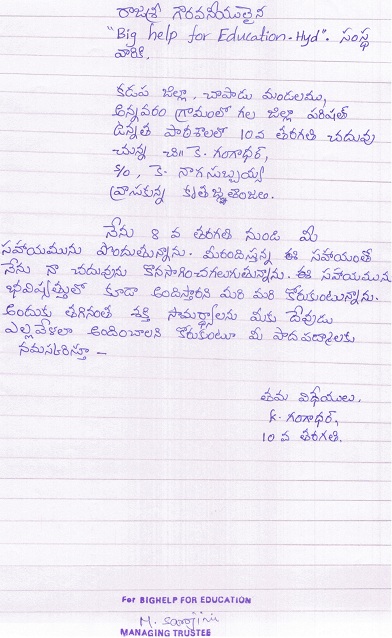 రాజశ్రీ గౌరవనీయులైన
"Big help for Education - Hyd". సంస్థ
వారికి,
కడప జిల్లా, చాపాడు మండలము,
అన్నవరం గ్రామంలో గల జిల్లా పరిషత్
ఉన్నత పాఠశాలలో 10వ తరగతి చదువు
చున్న చి॥ కె. గంగాధర్,
S/o, కె. నాగసుబ్బయ్య
వ్రాసుకున్న కృతజ్ఞతాంజలి.
నేను 8 వ తరగతి నుండి మీ
సహాయమును పొందుతున్నాను. మీరందిస్తున్న ఈ సహాయంతో
నేను నా చదువును కొనసాగించగలుగుతున్నాను. ఈ సహాయమును
భవిష్యత్తులో కూడా అందిస్తారని మరి మరి కోరుకుంటున్నాను.
అందుకు తగినంత శక్తి సామర్థ్యాలను మీకు దేవుడు
ఎల్లవేళలా అందించాలని కోరుకుంటూ మీ పాదపద్మాలకు
నమస్కరిస్తూ -
తమ విధేయులు.
K. గంగాధర్,
10 వ తరగతి.
For BIGHELP FOR EDUCATION
M. Sarojini
MANAGING TRUSTEE